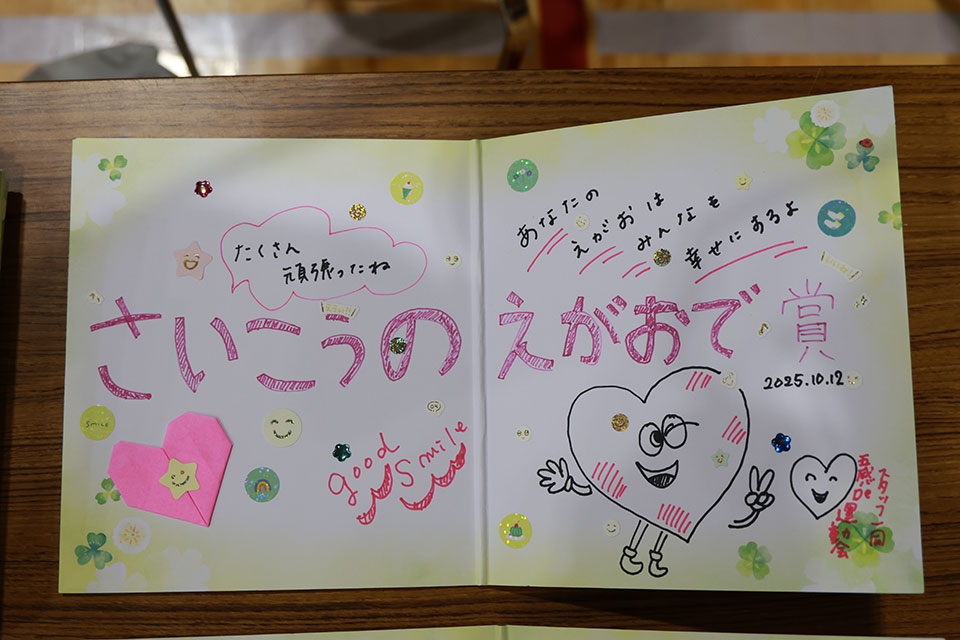 たくさん
頑張ったね
さいこうの
smile
good
smile
あなたの
えがおは
みんなを
幸せにあるよ
えがおで賞
2025.10.12
五感De運動会
スタッフ一同